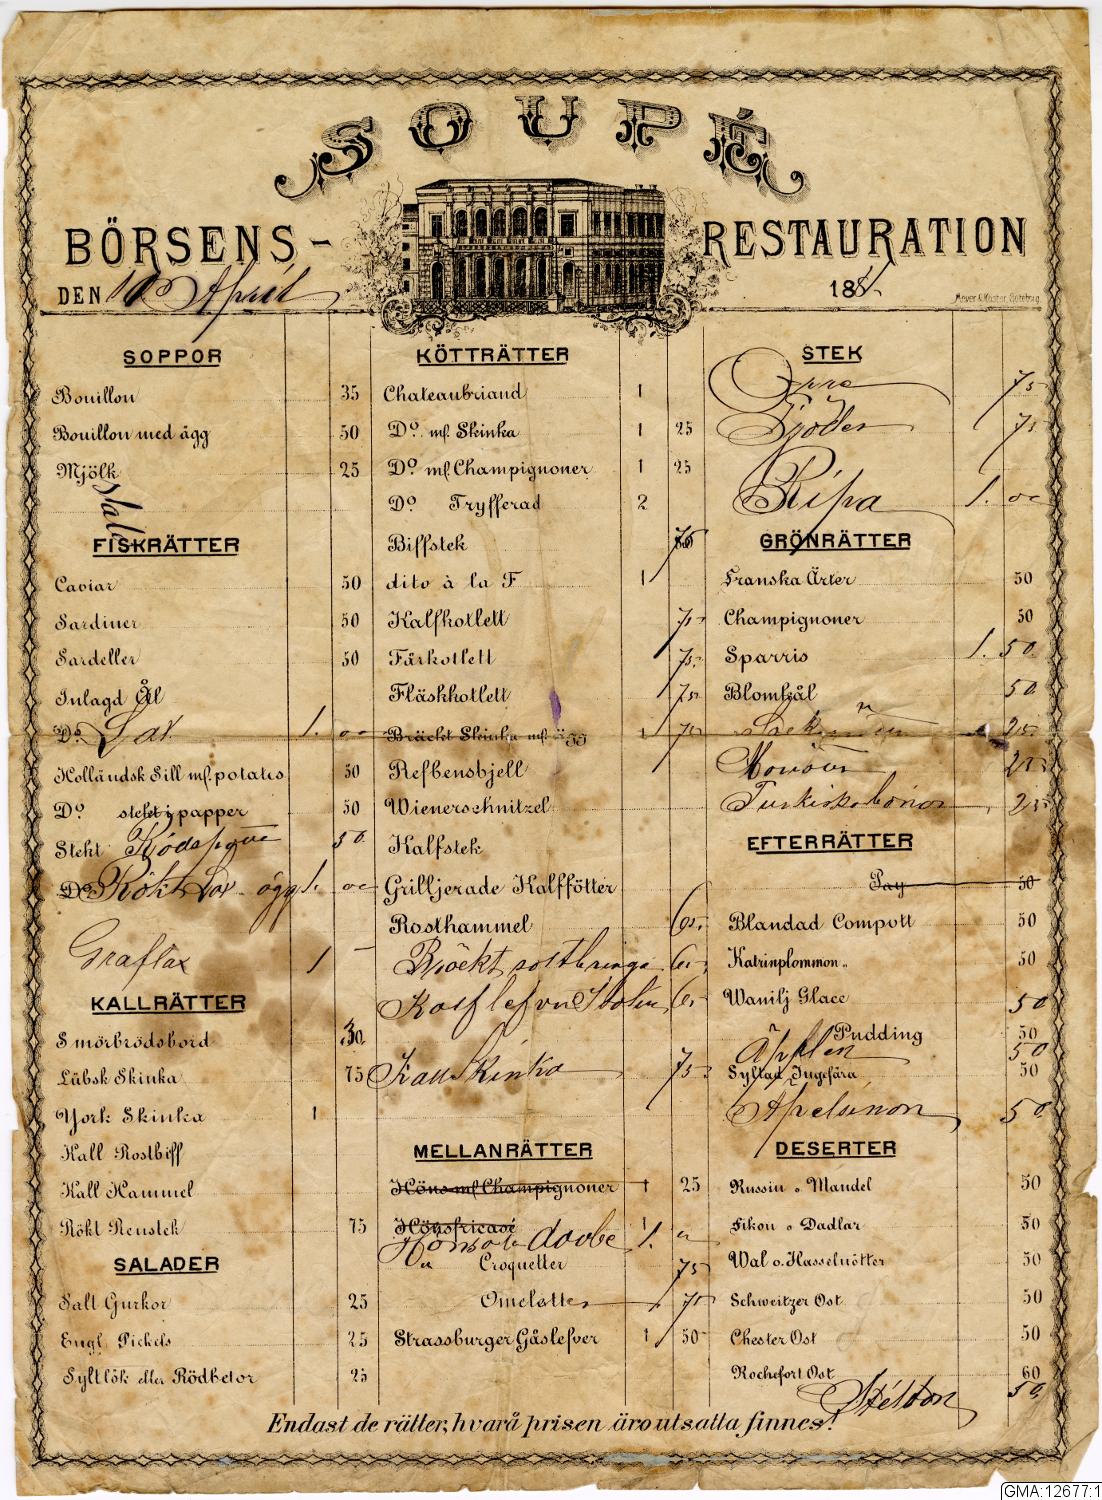 SOUPÉ
BÖRSENS-RESTAURATION
DEN 10 April 188
Meyer & Köster, Göteborg
SOPPOR
Bouillon 35
Bouillon med ägg 50
Mjölk 25
FISKRÄTTER
Caviar 50
Sardiner 50
Sardeller 50
Inlagd Ål
Do Lax 1. 00
Holländsk Sill mf. potatis 50
Do stekt i papper 50
Stekt Rödspotta 50.
Do Rökt Lax ägg 1. 00
Graflax 1 –
KALLRÄTTER
Smörbrödsbord 30.
Lübsk Skinka 75
York Skinka 1
Kall Rostbiff
Kall Hammel
Rökt Renstek 75
SALADER
Salt Gurkor 25
Engl. Pickels 25
Syltlök eller Rödbetor 25
KÖTTRÄTTER
Chateaubriand 1
Do mf. Skinka 1 25
Do mf Champignoner 1 25
Do Tryfferad 2
Biffstek 75
dito à la F 1
Kalfkotlett 75
Fårkotlett 75
Fläskkotlett 75
Bräckt Skinka mf. ägg 1 75
Refbensbjell
Wienerschnitzel
Kalfstek
Grilljerade Kalffötter
Rosthammel 65
Bräckt saltbringa 65
Kalflefver Stolen 65
Kall Skinka 75
MELLANRÄTTER
Höns mf Champignoner 1 25
Hönsfricasé 1
Höns doube 1.
Croquetter 75
Omeletter 75
Strassburger Gåslefver 1 50
STEK
Orre 75
Tjäder 75
Ripa 1. 00
GRÖNRÄTTER
Franska Ärter 50
Champignoner 50
Sparris 1. 50
Blomkål 50
25
Morötter 25
Turkiska bönor 25
EFTERRÄTTER
Pay 50
Blandad Compott 50
Katrinplommon „ 50
Wanilj Glace 50
Pudding 50
Äpplen 50
Syltad Ingefära 50
Apelsinon 50
DESERTER
Russin o Mandel 50
Fikon o Dadlar 50
Wal o. Hasselnötter 50
Schweitzer Ost 50
Chester Ost 50
Rochefort Ost 60
Stilton 50
Endast de rätter, hvarå prisen äro utsatta finnes!
GMA:12677:1